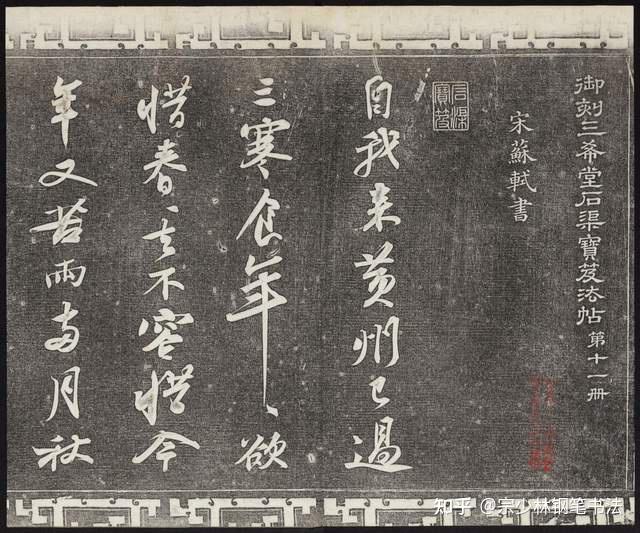 御刻三希堂石渠寶笈法帖 第十一冊
宋蘇軾書
石渠寶笈
自我来黃州已過
三寒食年〻欲
惜春〻去不容惜今
年又苦雨兩月秋
知乎 @宗少林钢笔书法